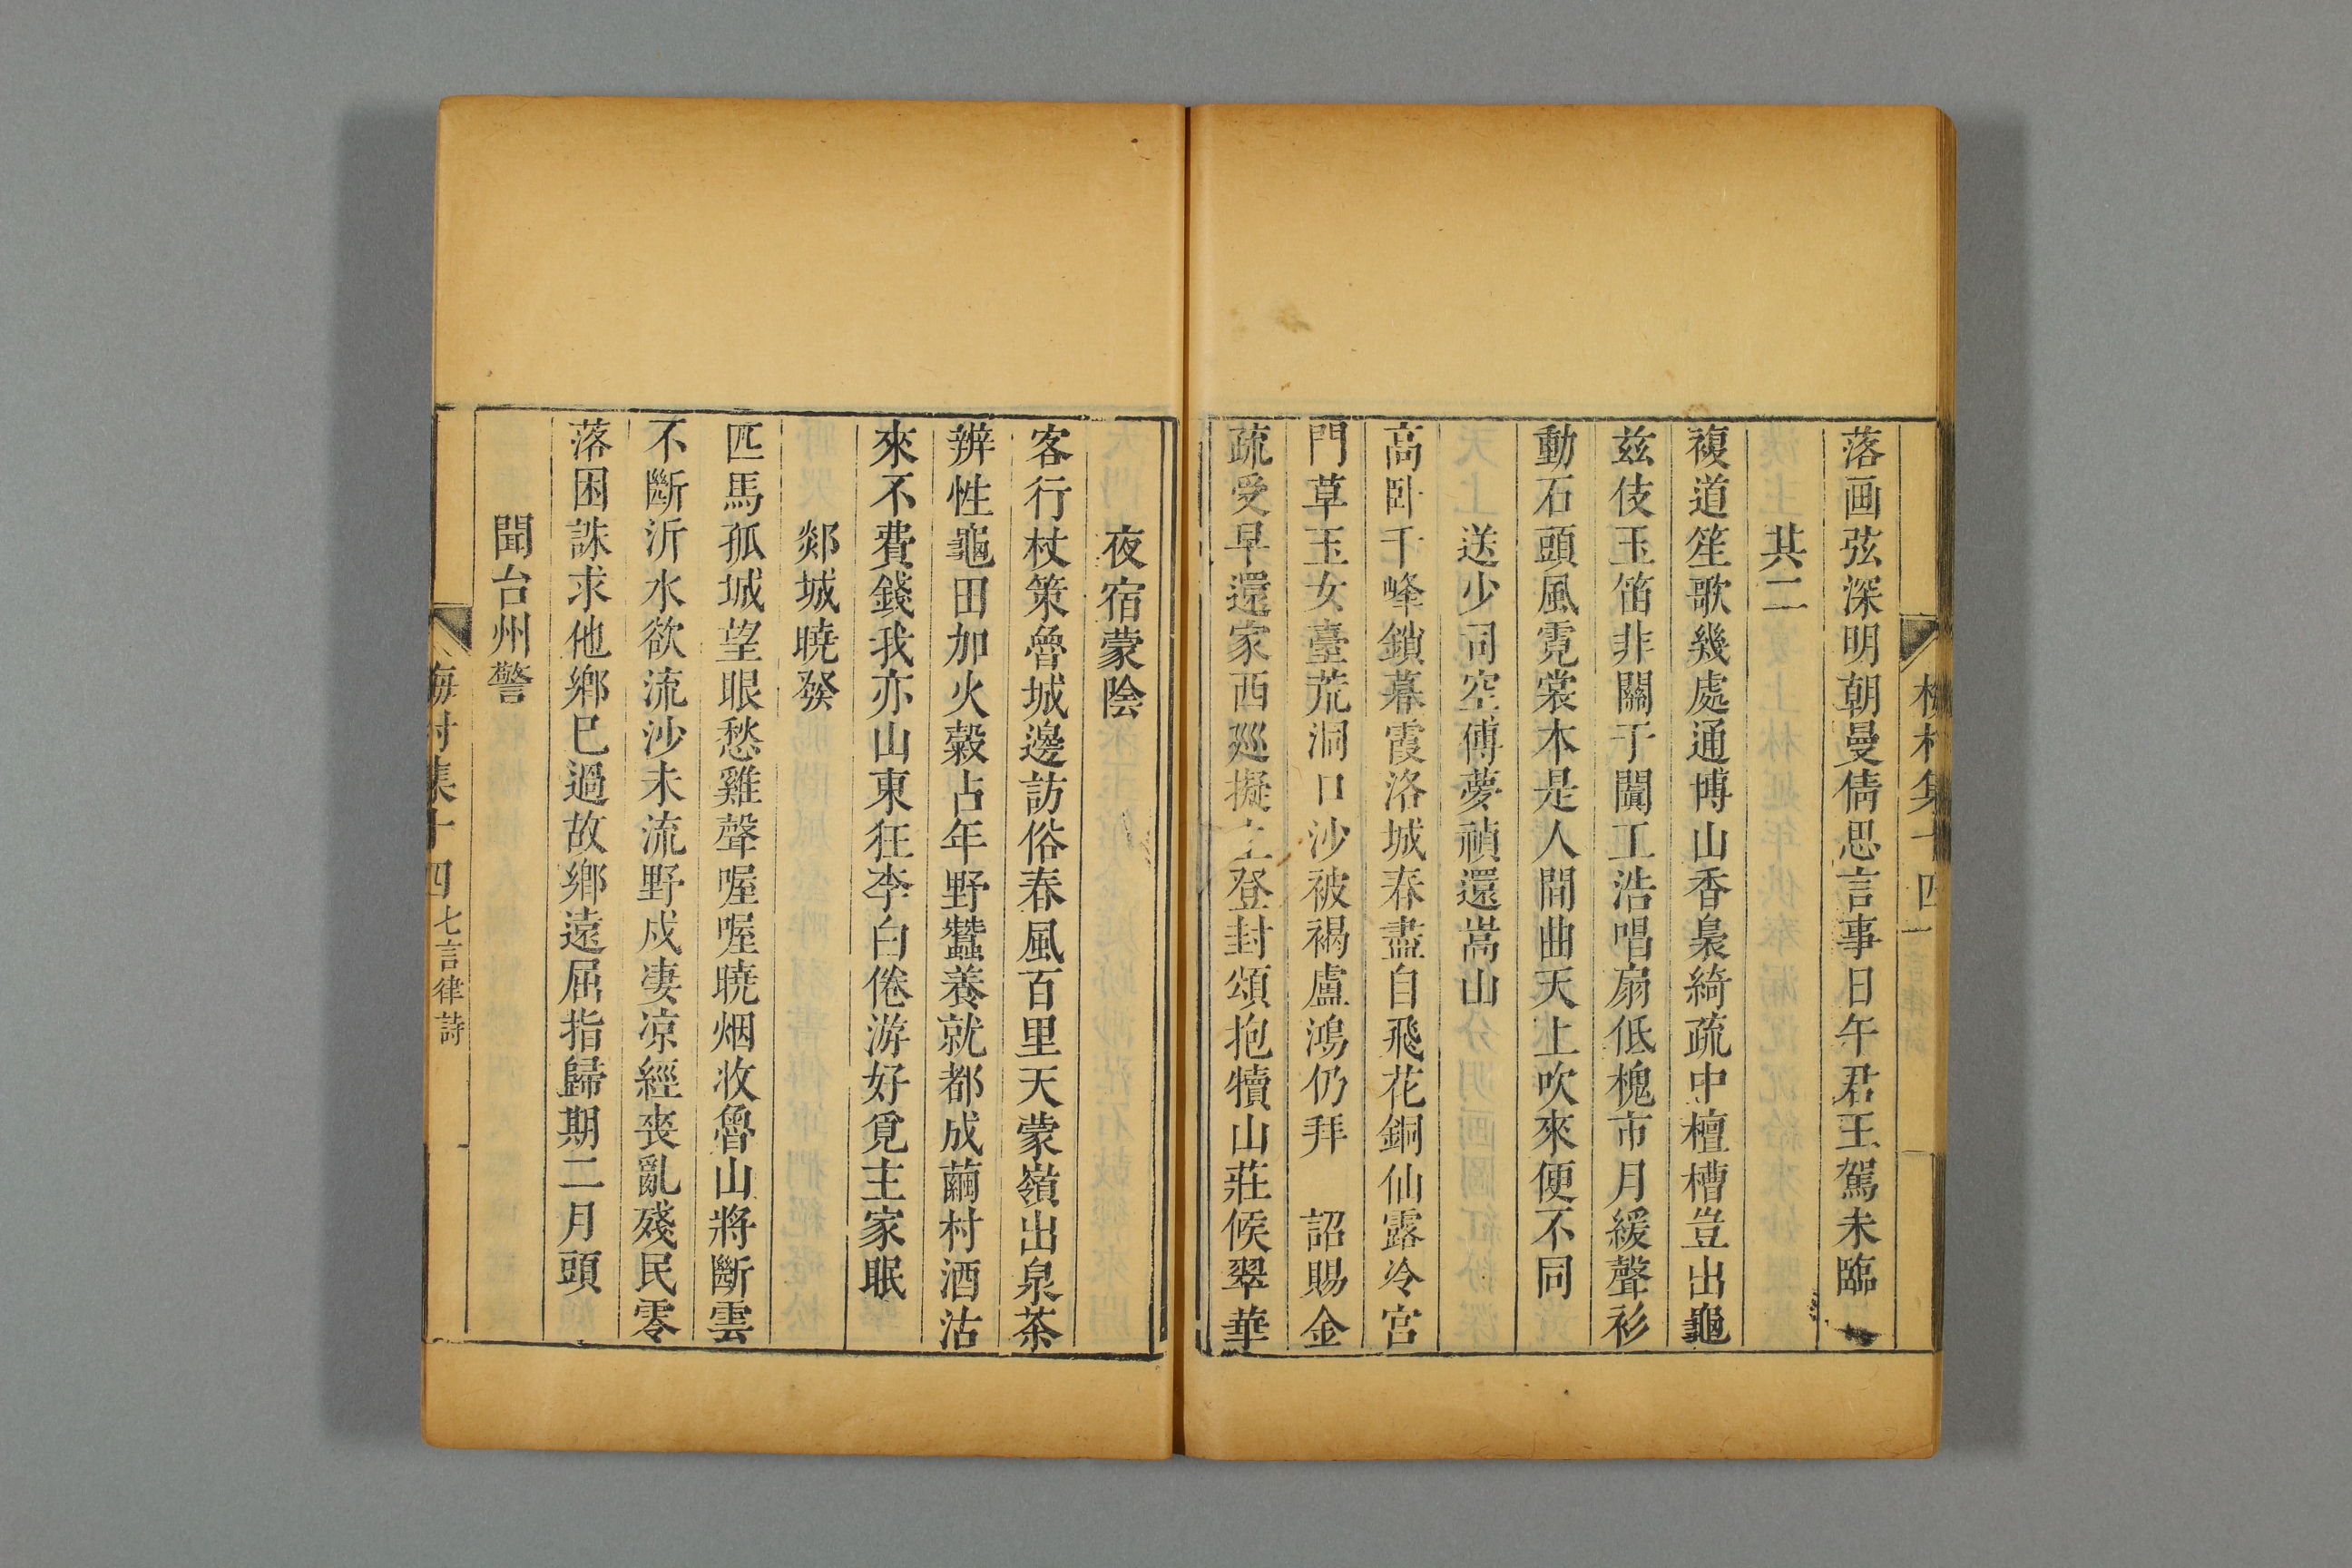 落画弦深明朝曼倩思言事日午君王駕未臨
其二
複道笙歌幾處通博山香裊綺疏中檀槽豈出龜
兹伎玉笛非關于闐工浩唱扇低槐市月緩聲衫
動石頭風霓裳本是人間曲天上吹來便不同
送少司空傅夢禎還嵩山
高卧千峰鎖暮霞洛城春盡自飛花銅仙露冷宮
門草玉女臺荒洞口沙被褐盧鴻仍拜 詔賜金
疏受早還家西廵擬上登封頌抱犢山莊候翠華
夜宿蒙陰
客行杖策魯城邊訪俗春風百里天蒙嶺出泉茶
辨性龜田加火穀占年野蠶養就都成繭村酒沽
來不費錢我亦山東狂李白倦游好覓主家眠
郯城曉發
匹馬孤城望眼愁雞聲喔喔曉烟收魯山將斷雲
不斷沂水欲流沙未流野戍凄凉經喪亂殘民零
落困誅求他鄉巳過故鄉遠屈指歸期二月頭
聞台州警
梅村集十四 七言律詩